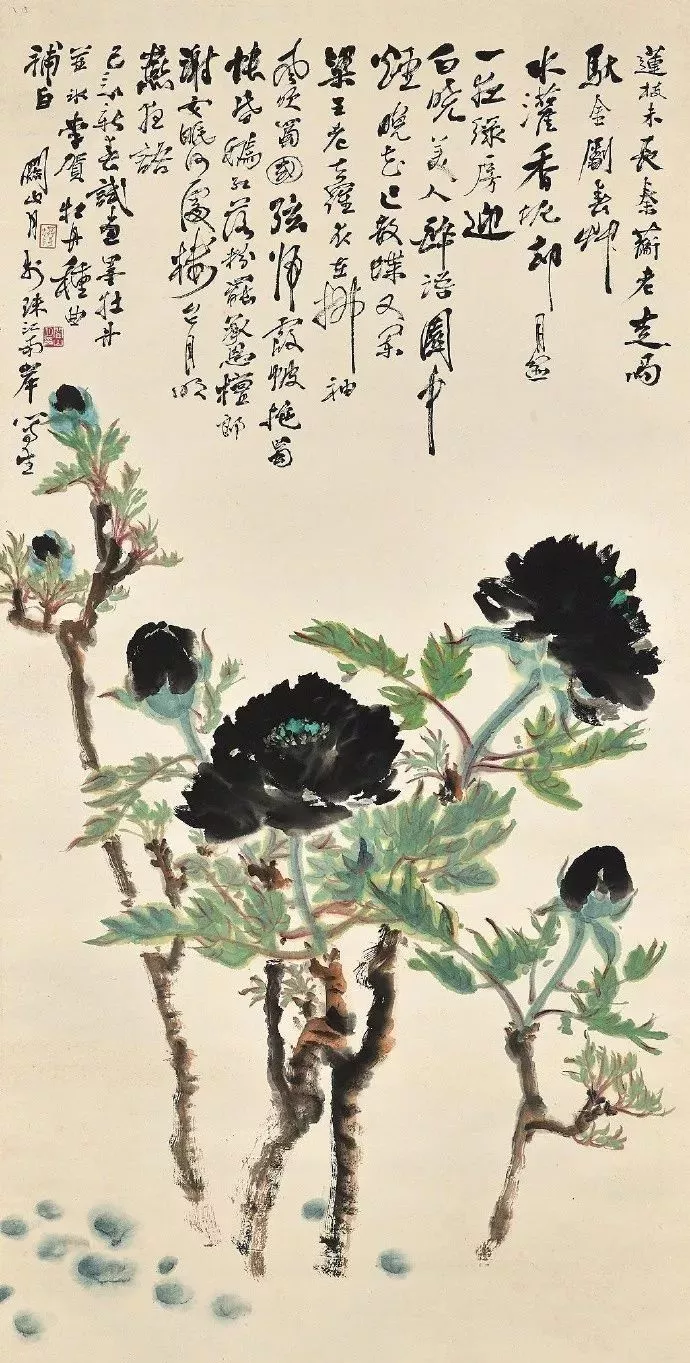 蓮枝未長秦蘅老走馬
馱金劚春艸
水灌香泥却月盆
一夜綠房迎
白曉美人醉語園中
煙晚花已散蝶又闌
梁王老去羅衣在拂袖
風吹蜀國弦歸霞帔拖蜀
帳昏嫣紅落粉罷承恩檀郎
謝女眠何處樓台月明
燕夜語
己新春試畫墨牡丹
並李賀牡丹種曲
補白
關山月於珠江南岸寫生